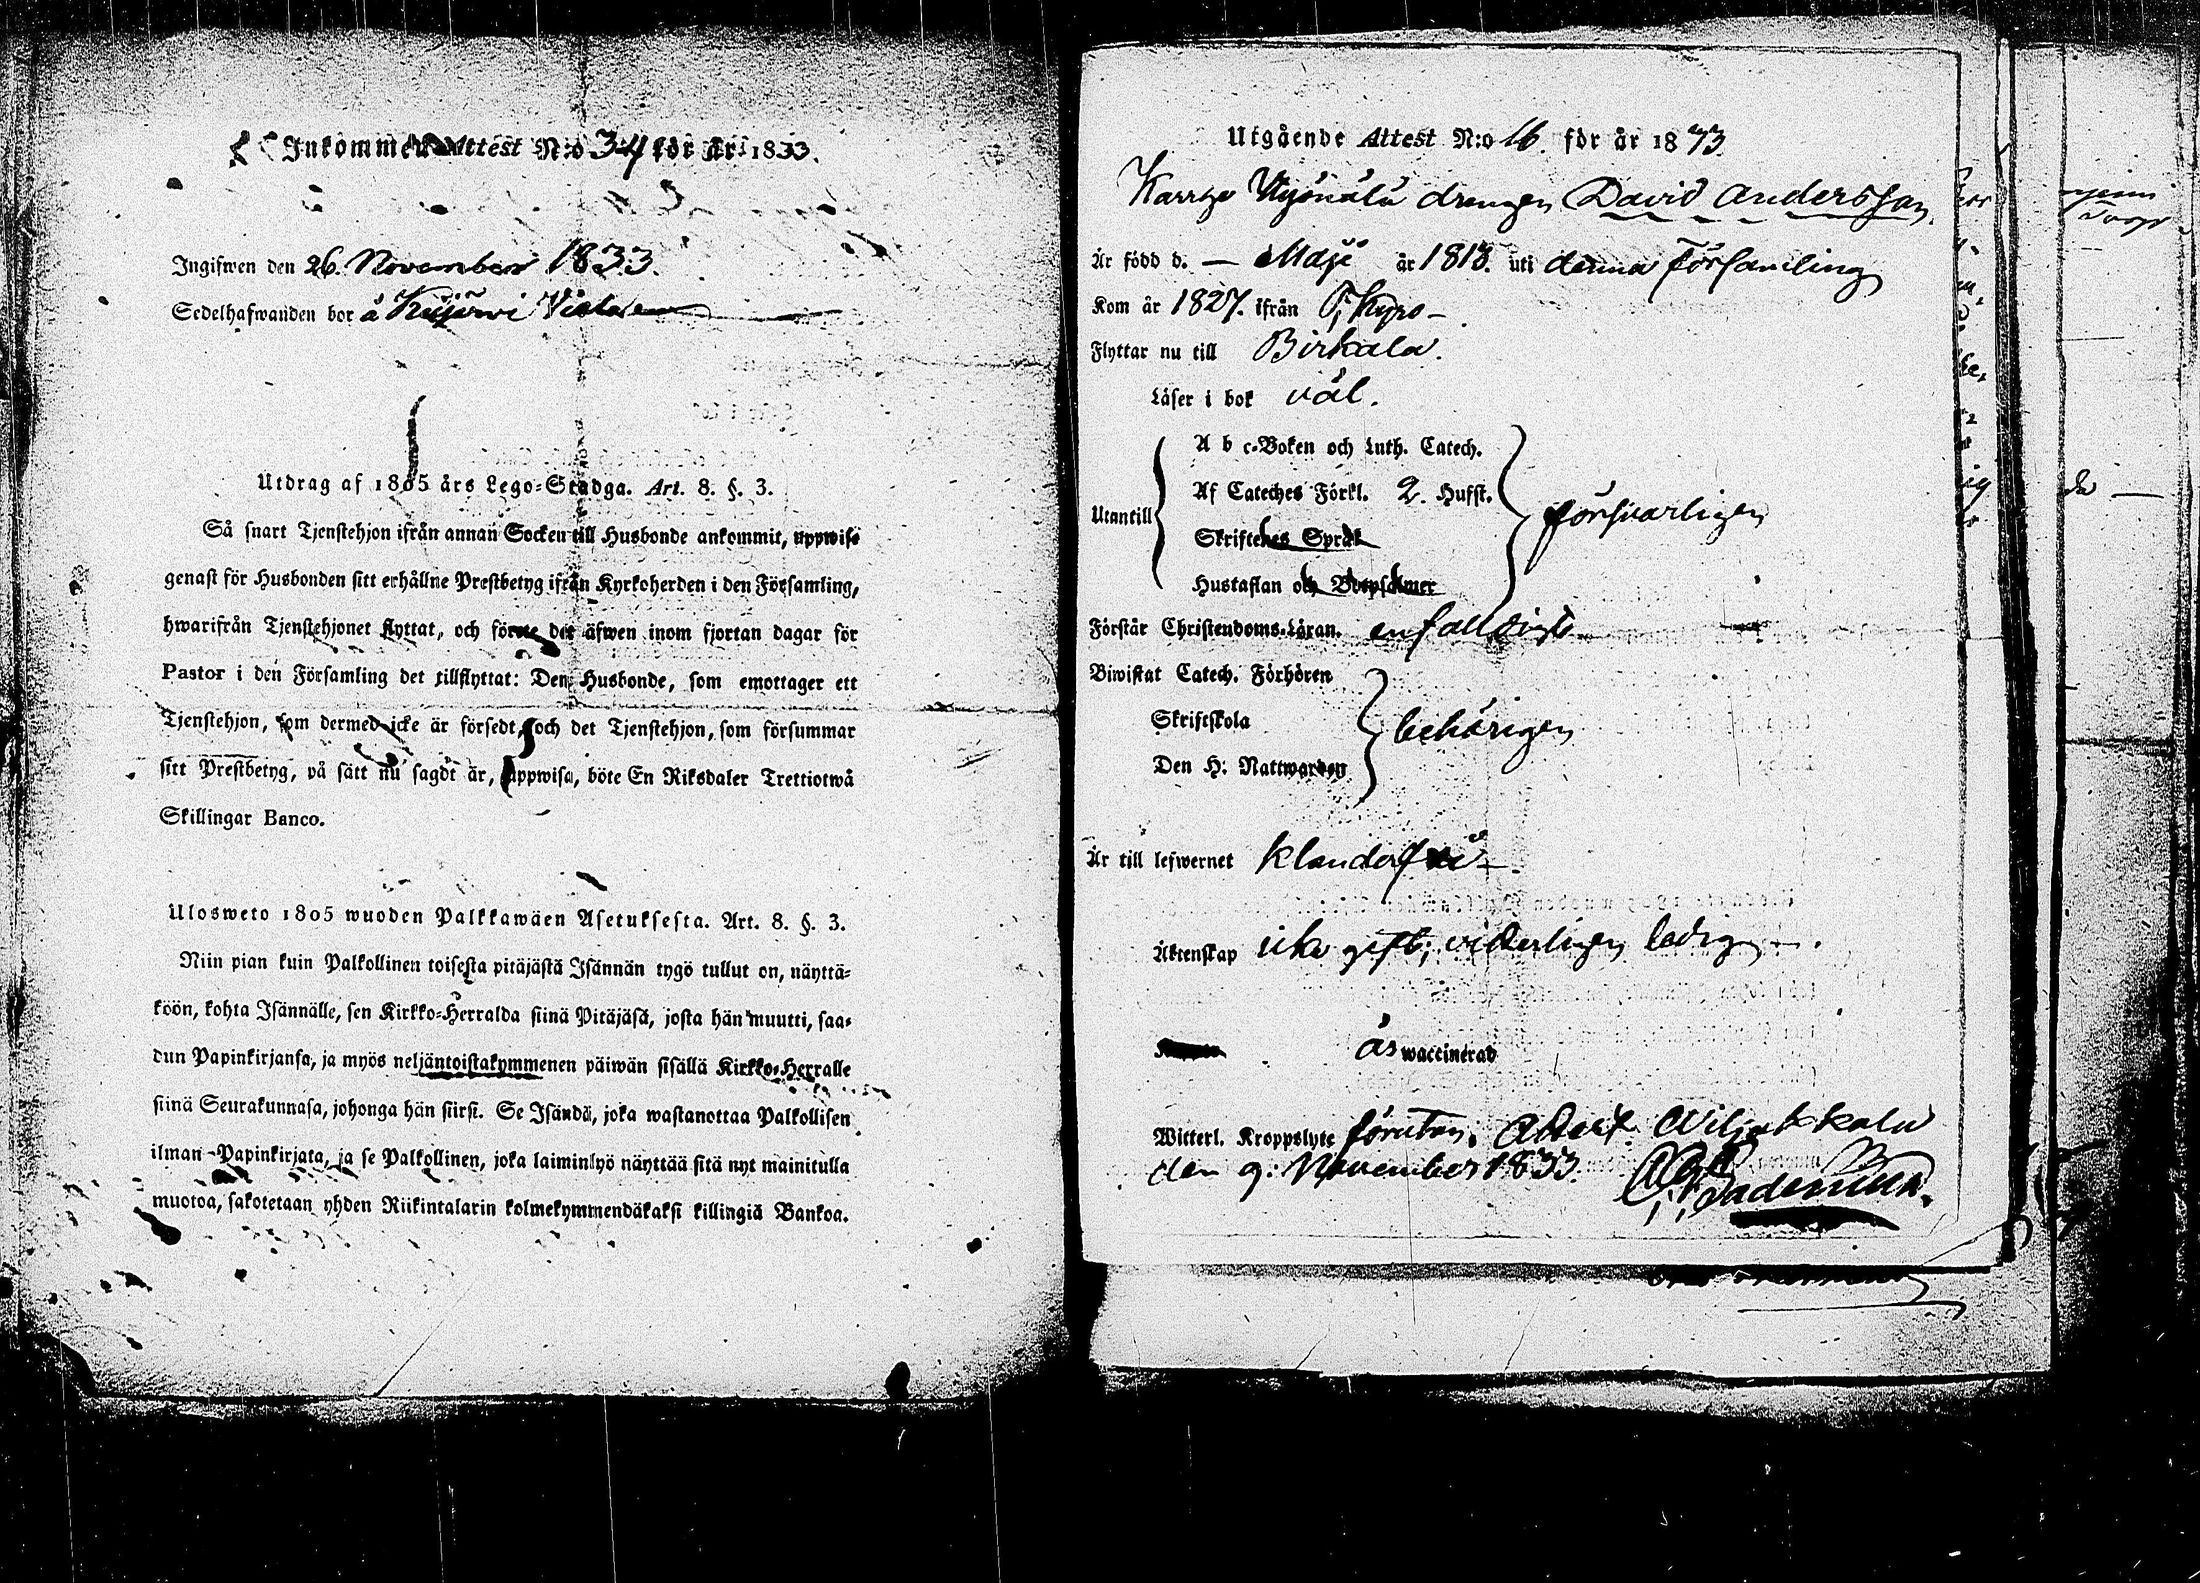 Inkommen Attest N:o 34 för år 1833.
Ingifwen den 26 November 1833.
Sedelhafwanden bor å Kiijärwi
Utdrag af 1805 års Lego-Stadga. Art. 8. §. 3.
Så snart Tjenstehjon ifrån annan Socken till Husbonde ankommit, uppwise
genast för Husbonden sitt erhållne Prestbetyg ifrån Kyrkoherden i den Församling,
hwarifrån Tjenstehjonet flyttat, och förete det äfwen inom fjortan dagar för
Pastor i den Församling det tillflyttat: Den Husbonde, som emottager ett
Tjenstehjon, som dermed icke är försedt, och det Tjenstehjon, som försummar
sitt Prestbetyg, på sätt nu sagdt är, uppwisa, böte En Riksdaler Trettiotwå
Skillingar Banco.
Ulosweto 1805 wuoden Palkkawäen Asetuksesta. Art. 8. §. 3.
Niin pian kuin Palkollinen toisesta pitäjästä Isännän tygö tullut on, näyttä-
köön, kohta Isännälle, sen Kirkko-Herralda siinä Pitäjäsä, josta hän muutti, saa-
dun Papinkirjansa, ja myös neljäntoistakymmenen päiwän sisällä Kirkko-Herralle
siinä Seurakunnasa, johonga hän siirsi. Se Isändä, joka wastanottaa Palkollisen
ilman Papinkirjata, ja se Palkollinen, joka laiminlyö näyttää sitä nyt mainitulla
muotoa, sakotetaan yhden Riikintalarin kolmekymmendäkaksi killingiä Bankoa.
Utgående Attest N:o 16. för år 1833.
drengen David Andersson
Är född d. — Maji år 1813. uti denna Församling
Kom år 1827. ifrån T. Kyro —
Flyttar nu till Birkala.
Läser i bok väl.
A b c-Boken och Luth. Catech.
Af Cateches Förkl. 2. Hufst.
Utantill försvarligen
Skriftenes Språk
Hustaflan och Botpsalmer
Förstår Christendoms-Läran. enfalldigt
Biwistat Catech. Förhören
Skriftskola behörigen
Den H: Nattwarden
Är till lefwernet klanderfri —
Äktenskap icke gift; vitterligen ledig —.
är waccinerad
Witterl. Kroppslyte förutan. Attest. Wiljakkala
den 9. November 1833.